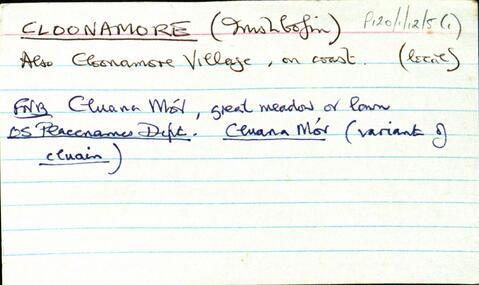 CLOONAMORE (Inishbofin) P120/1/12/5 (1)
Also Cloonamore Village, on coast. (local)
FNB Cluana Mór, great meadow or lawn
OS Placenames Dept. Cluana Mór (variant of
cluain)